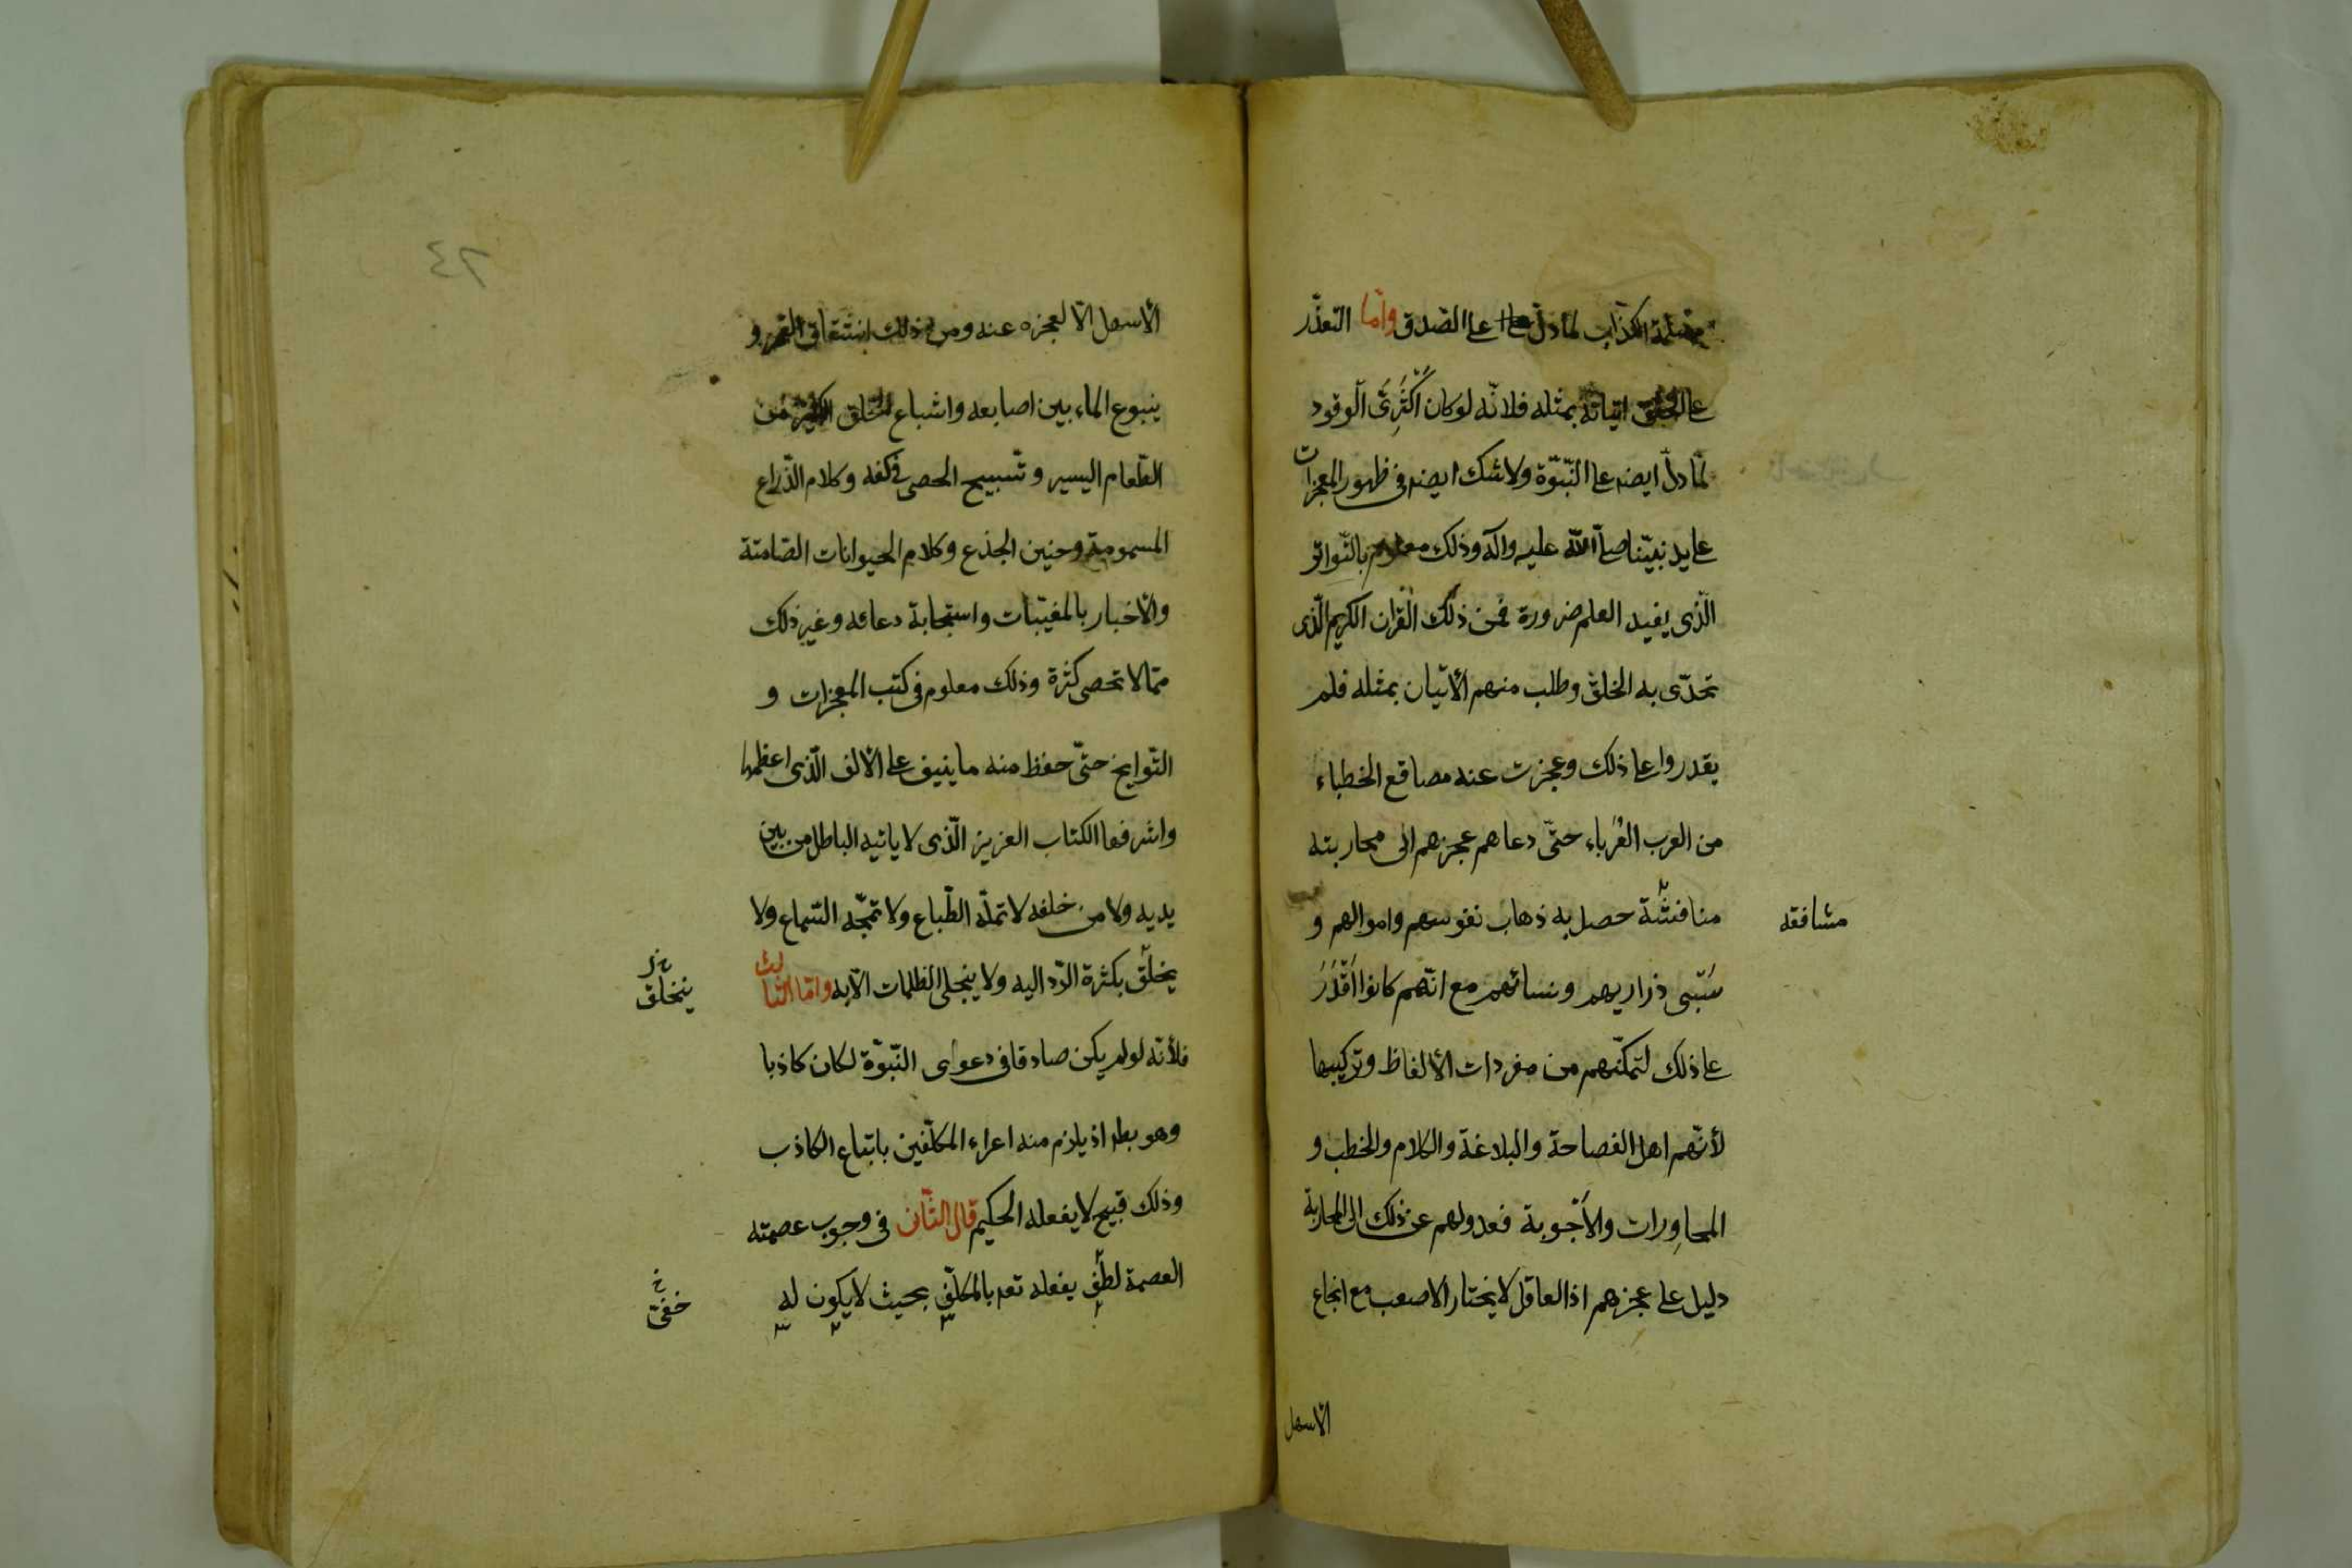 مسيلمة الكذاب لما دلّ على الصّدق وامّا التعذّر
على الخلق اتيانه بمثله فلانّه لو كان اكثرىّ الوقود
لمّا دلّ ايضه على النّبوّة ولا شك ايضه فى ظهور المعجزات
على يد نبيّنا صلّى الله عليه وآله وذلك معلوم بالتّواتر
الّذى يفيد العلم ضرورة فمن ذلك القرآن الكريم الّذى
تحدّى به الخلق وطلب منهم الأتيان بمثله فلم
يقدروا على ذلك وعجزت عنه مصاقع الخطباء
من العرب العُرباء حتّى دعاهم عجزهم الى محاربته
منافشّة حصل به ذهاب نفوسهم واموالهم و
مشافقه
سَبْى ذراريهم ونسائهم مع انّهم كانوا اَقْدَرَ
على ذلك لتمكّنهم من مفردات الألفاظ وتركيبها
لأنّهم اهل الفصاحة والبلاغة والكلام والخطب و
المحاوِرات والأجوبة فعدولهم عن ذلك الى المحاربة
دليل على عجزهم اذ العاقل لا يختار الاصعب مع انجاع
الأسهل
٤٢
الأسهل الّا لعجزه عنه ومن ذلك انشقاق القمر و
ينبوع الماء بين اصابعه واشباع الخلق الكثير من
الطّعام اليسير وتسبيح الحصى فى كفه وكلام الذّراع
المسمومة وحنين الجذع وكلام الحيوانات الصّامتة
والأخبار بالمغيّبات واستجابة دعائه وغير ذلك
ممّا لا تحصى كثرة وذلك معلوم فى كتب المعجزات و
التّواريخ حتّى حفظ منه ما ينيف على الألف الّذى اعظمها
واشرفها الكتاب العزيز الّذى لا ياتيه الباطل من بين
يديه ولا من خلفه لا تملّه الطّباع ولا تمجّه السّماع ولا
يخلق بكثرة الرّد اليه ولا ينجلى الظلمات الّا به وامّا الثالث
ينخلق
فلأنّه لو لم يكن صادقا فى دعواى النّبوّة لكان كاذبا
وهو بط اذ يلزم منه اعراء المكلّفين باتباع الكاذب
وذلك قبيح لا يفعله الحكيم قال الثّانى فى وجوب عصمته
العصمة لطف يفعله تعه بالمكلّف بحيث لا يكون له
خفىّ